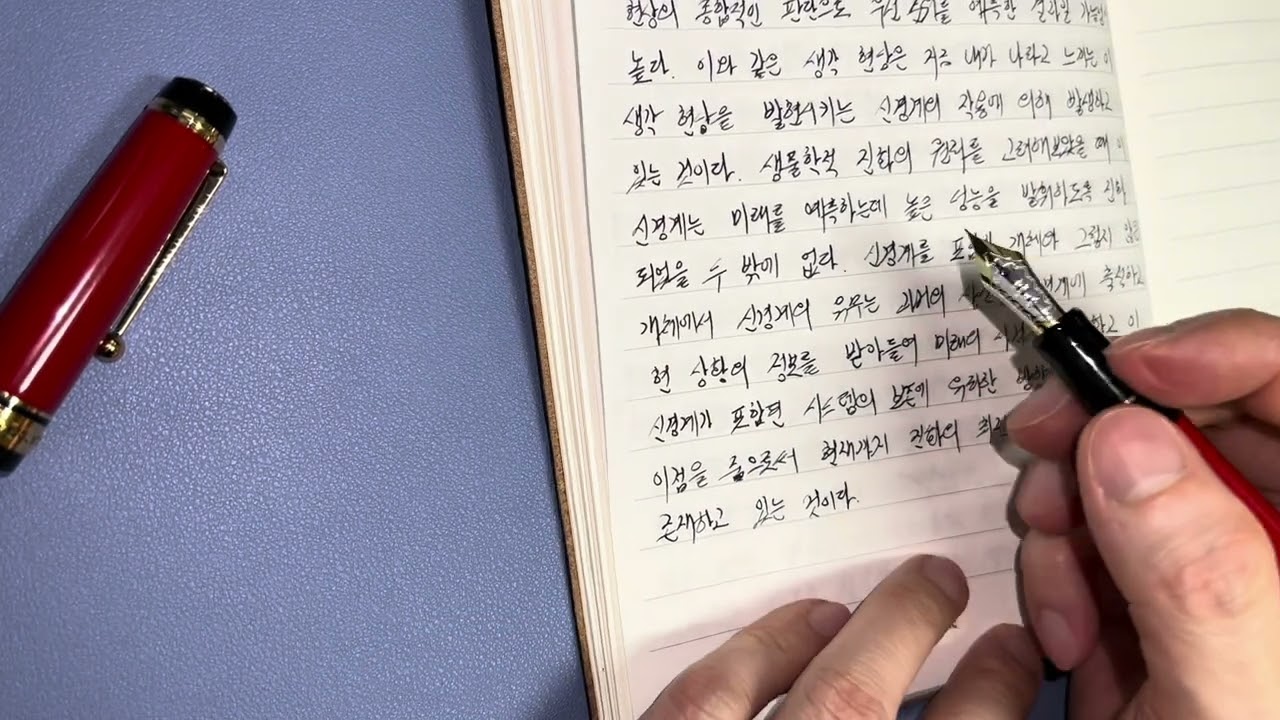 현상의 종합적인 판단으로 우선 예측한 결과일 가능성이
높다. 이와 같은 생각 현상은 지금 내가 나라고 느끼는 이
생각 현상을 발현시키는 신경계의 작용에 의해 발생하고
있는 것이다. 생물학적 진화의 원리를 고려해보았을 때 이
신경계는 미래를 예측하는데 높은 성능을 발휘하도록 진화
되었을 수 밖에 없다. 신경계를 개체와 그렇지 않은
개체에서 신경계의 유무는 과거의 축적하고
현 상황의 정보를 받아들여 미래의 이
신경계가 포함된 시스템의 보존에 유리한
이점을 줌으로써 현재까지 진화의
존재하고 있는 것이다.